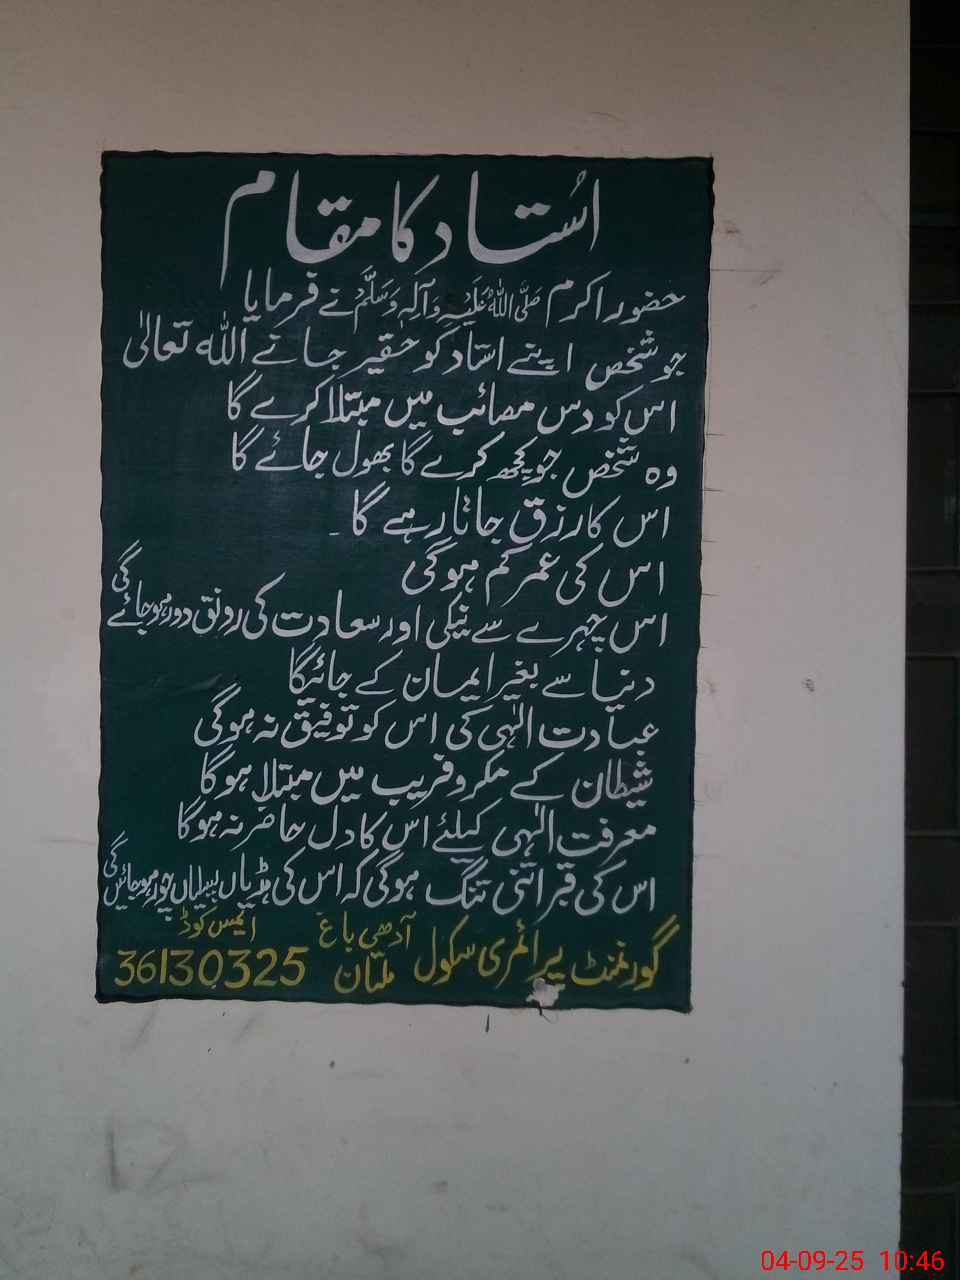 اُستاد کا مقام
حضور اکرم صَلَّی اللہُ عَلَیْہِ وَآلِہٖ وَسَلَّمَ نے فرمایا
جو شخص اپنے استاد کو حقیر جانے اللہ تعالیٰ
اس کو دس مصائب میں مبتلا کرے گا
وہ شخص جو کچھ کرے گا بھول جائے گا
اس کا رزق جاتا رہے گا ۔
اس کی عمر کم ہوگی
اس چہرے سے نیکی اور سعادت کی رونق دور ہو جائے گی
دنیا سے بغیر ایمان کے جائیگا
عبادت الٰہی کی اس کو توفیق نہ ہوگی
شیطان کے مکر و فریب میں مبتلا ہوگا
معرفت الٰہی کیلئے اس کا دل حاضر نہ ہوگا
اس کی قبر اتنی تنگ ہوگی کہ اس کی ہڈیاں پسلیاں چور ہو جائیں گی
گورنمنٹ پرائمری سکول آدھی باغ ملتان ایمس کوڈ 36130325
04-09-25 10:46